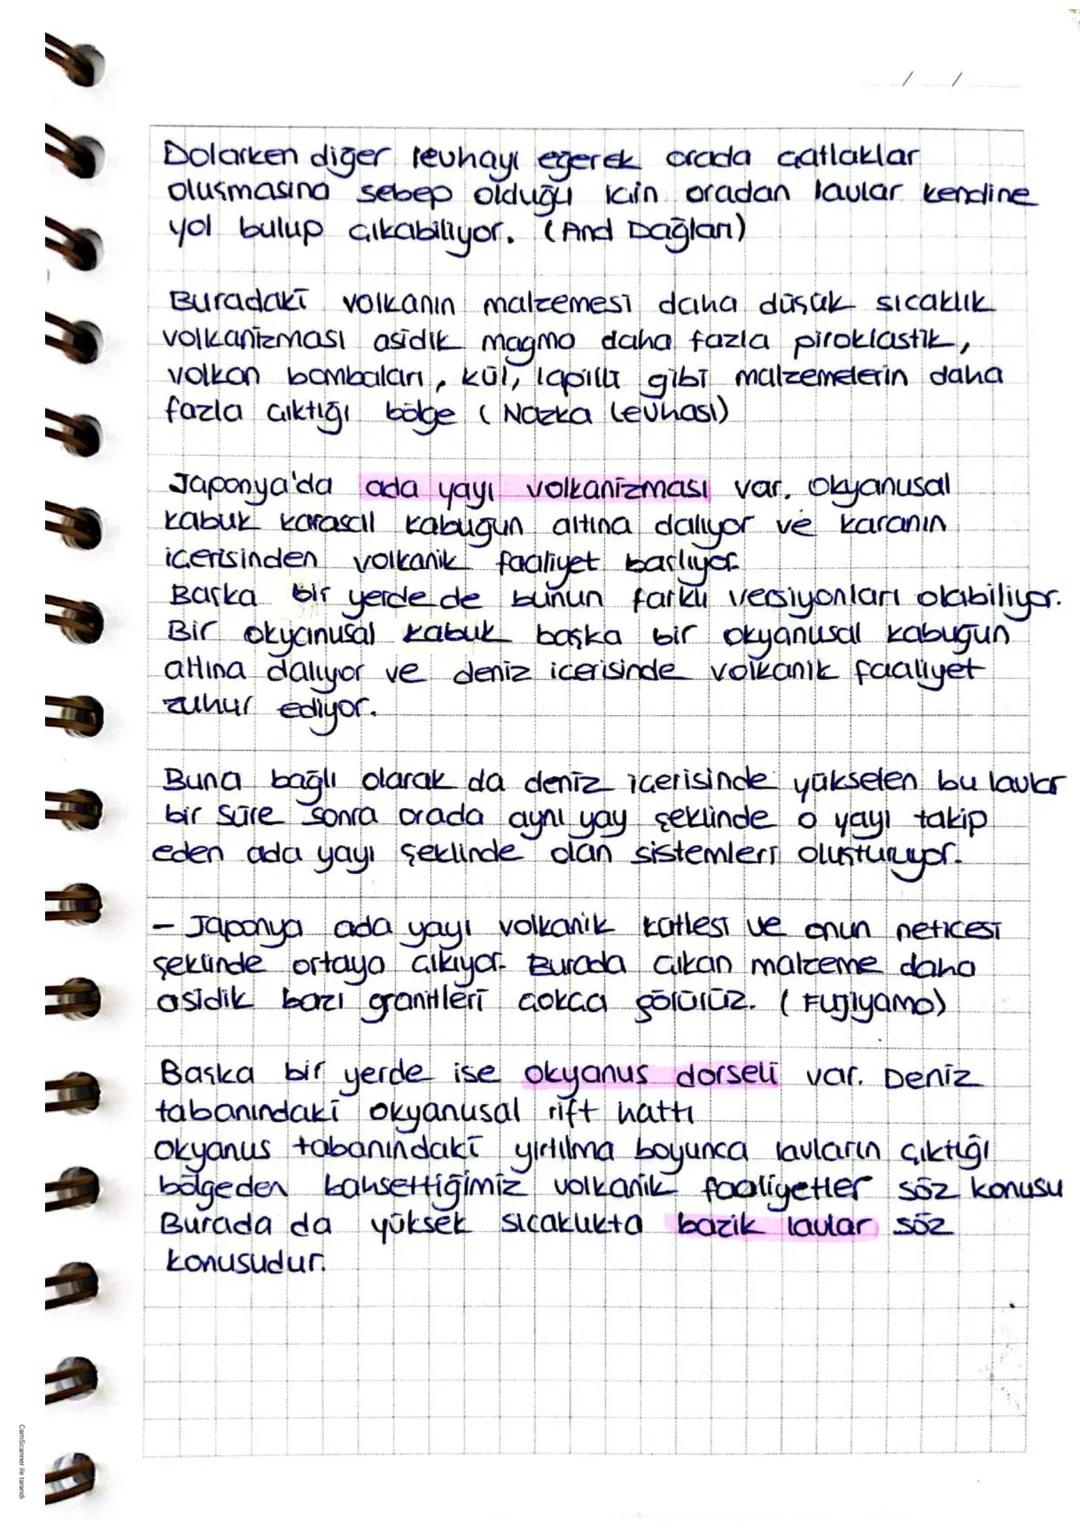 / /
Dalarken diğer levhayı eğerek orada çatlaklar
oluşmasına sebep olduğu için oradan lavlar kendine
yol bulup çıkabiliyor. (And Dağları)
Buradaki volkanın malzemesi daha düşük sıcaklık
volkanizması asidik magma daha fazla piroklastik,
volkan bombaları, kül, lapilli gibi malzemelerin daha
fazla çıktığı bölge (Nazka Levhası)
Japonya'da ada yayı volkanizması var. Okyanusal
kabuk karasal kabuğun altına dalıyor ve karanın
içerisinden volkanik faaliyet başlıyor.
Başka bir yerde de bunun farklı versiyonları olabiliyor.
Bir okyanusal kabuk başka bir okyanusal kabuğun
altına dalıyor ve deniz içerisinde volkanik faaliyet
zuhur ediyor.
Buna bağlı olarak da deniz içerisinde yükselen bu lavlar
bir süre sonra orada aynı yay şeklinde o yayı takip
eden ada yayı şeklinde olan sistemleri oluşturuyor.
- Japonya ada yayı volkanik kütlesi ve onun neticesi
şeklinde ortaya çıkıyor. Burada çıkan malzeme daha
asidik bazı granitleri çokça görürüz. (Fujiyama)
Başka bir yerde ise okyanus dorseli var. Deniz
tabanındaki okyanusal rift hattı
Okyanus tabanındaki yırtılma boyunca lavların çıktığı
bölgeden bahsettiğimiz volkanik faaliyetler söz konusu
Burada da yüksek sıcaklıkta bazik lavlar söz
konusudur.
CamScanner ile tarandı